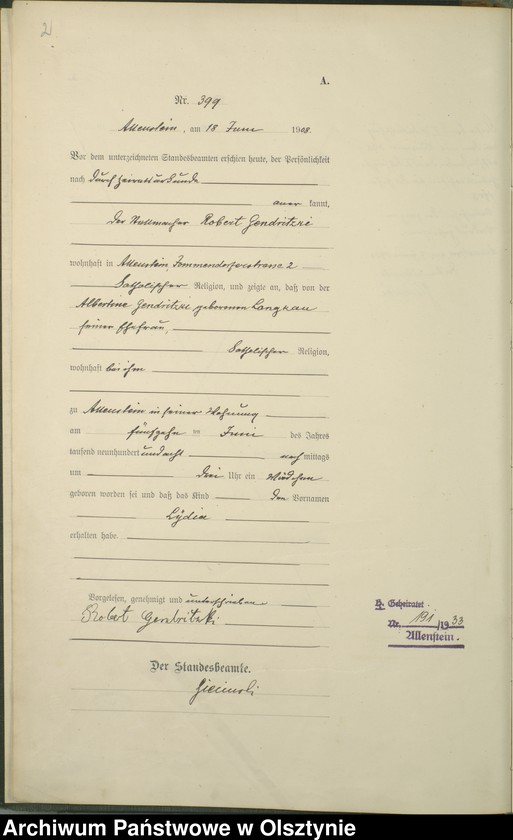 2
A.
Nr. 399
Allenstein, am 18 Juni 1908.
Vor dem unterzeichneten Standesbeamten erschien heute, der Persönlichkeit
nach durch Heiratsurkunde
aner kannt,
der Stellmacher Robert Gendritzki
wohnhaft in Allenstein, 2
katholischer Religion, und zeigte an, daß von der
Albertine Gendritzki geborenen Langkau
seiner Ehefrau,
katholischer Religion,
wohnhaft bei ihm
zu Allenstein in seiner Wohnung
am fünfzehn ten Juni des Jahres
tausend neunhundert und acht nach mittags
um drei Uhr ein Mädchen
geboren worden sei und daß das Kind den Vornamen
Lydia
erhalten habe.
Vorgelesen, genehmigt und unterschrieben
Robert Gendritzki
Der Standesbeamte.
Geheiratet
Nr. 191/1933
Allenstein.
Archiwum Państwowe w Olsztynie